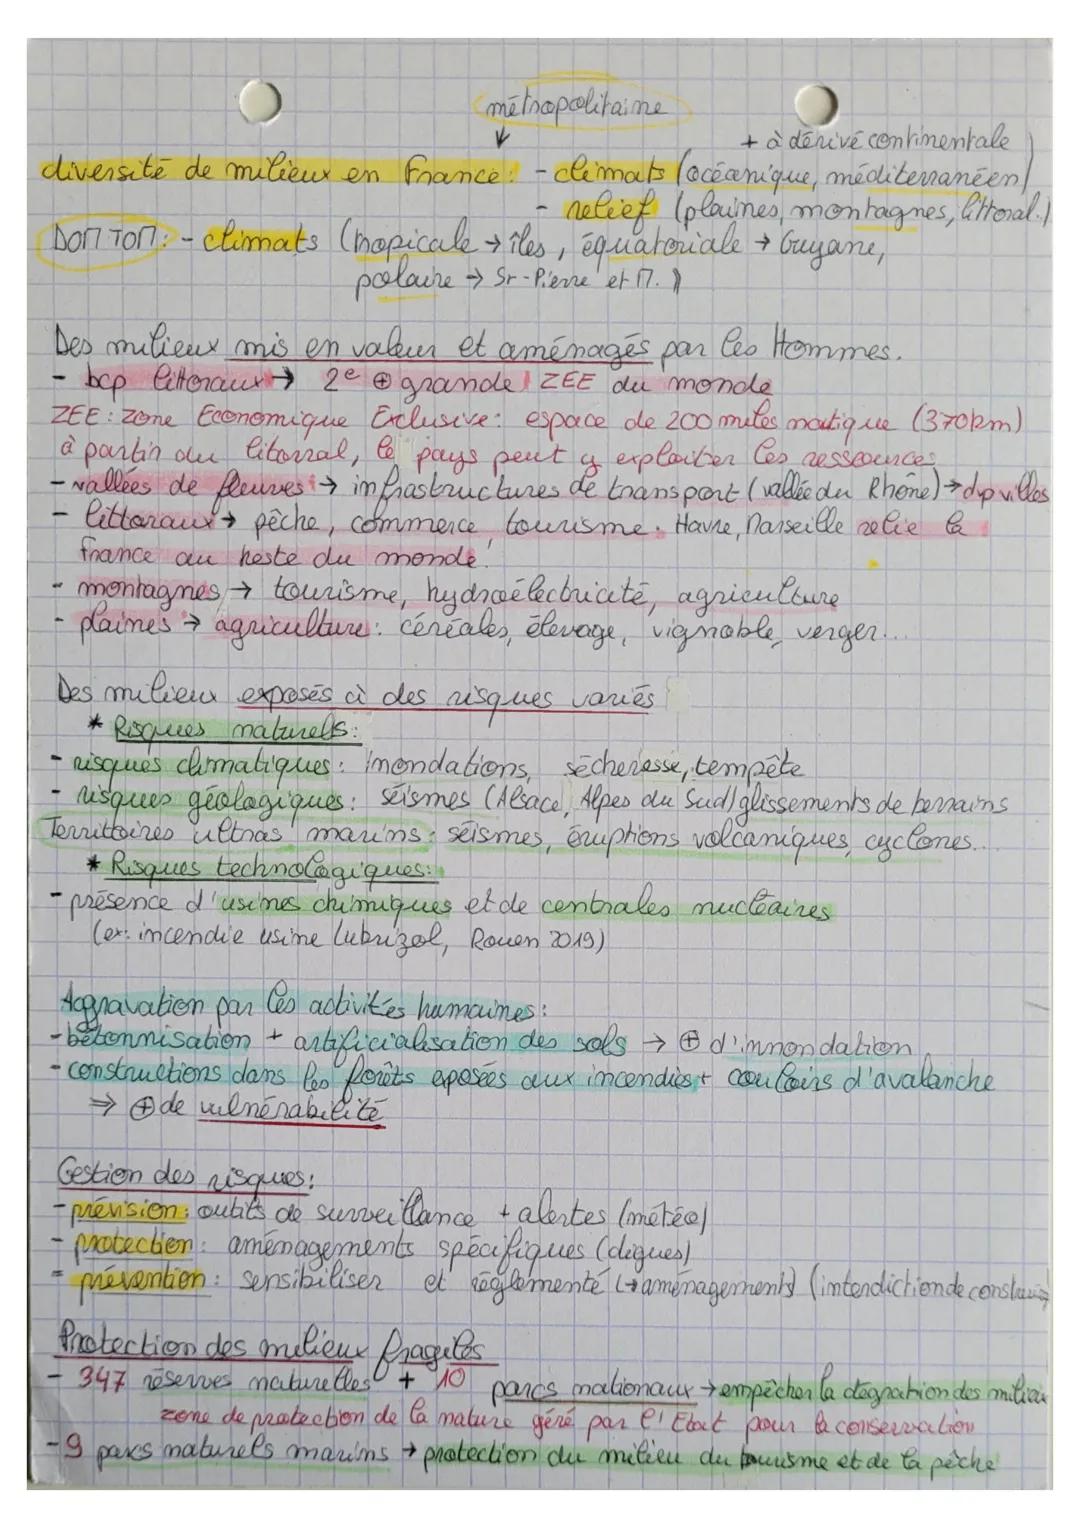 métropolitaine
+ à dérivé continentale
diversité de milieux en France: - climats (océanique, méditerranéen)
- relief (plaines, montagnes, littoral.)
DOM TOM: - climats (tropicale → îles, équatoriale → Guyane,
polaire → St-Pierre et M.)
Des milieux mis en valeur et aménagés par les Hommes.
- bcp littoraux → 2e ⊕ grande ZEE du monde
ZEE: Zone Economique Exclusive: espace de 200 miles nautique (370km)
à partir du littorral, le pays peut y exploiter les ressources
- vallées de fleuves → infrastructures de transport (vallée du Rhône) → dvp villes
- littoraux → pêche, commerce, tourisme. Havre, Marseille relie la
france au reste du monde!
- montagnes → tourisme, hydroélectricité, agriculture
- plaines → agriculture: céréales, élevage, vignoble, verger...
Des milieux exposés à des risques variés
* Risques naturels:
- risques climatiques: innondations, sécheresse, tempête
- risques géologiques: séismes (Alsace, Alpes du Sud) glissements de terrains
Territoires ultras marins: séismes, éruptions volcaniques, cyclones...
* Risques technologiques:
- présence d'usines chimiques et de centrales nucléaires
(ex: incendie usine Lubrizol, Rouen 2019)
Aggravation par les activités humaines:
- bétonnisation + artificialisation des sols → ⊕ d'innondation
- constructions dans les forêts exposées aux incendies + couloirs d'avalanche
⇒ ⊕ de vulnérabilité
Gestion des risques:
- prévision: outils de surveillance + alertes (météo)
- protection: aménagements spécifiques (digues)
- prévention: sensibiliser et réglementé (→ aménagements) (interdiction de construire)
Protection des milieux fragiles
- 347 réserves naturelles + 10 parcs nationaux → empêcher la dégration des milieux
zone de protection de la nature géré par l'Etat pour la conservation
- 9 parcs naturels marins → protection du milieu du tourisme et de la pêche